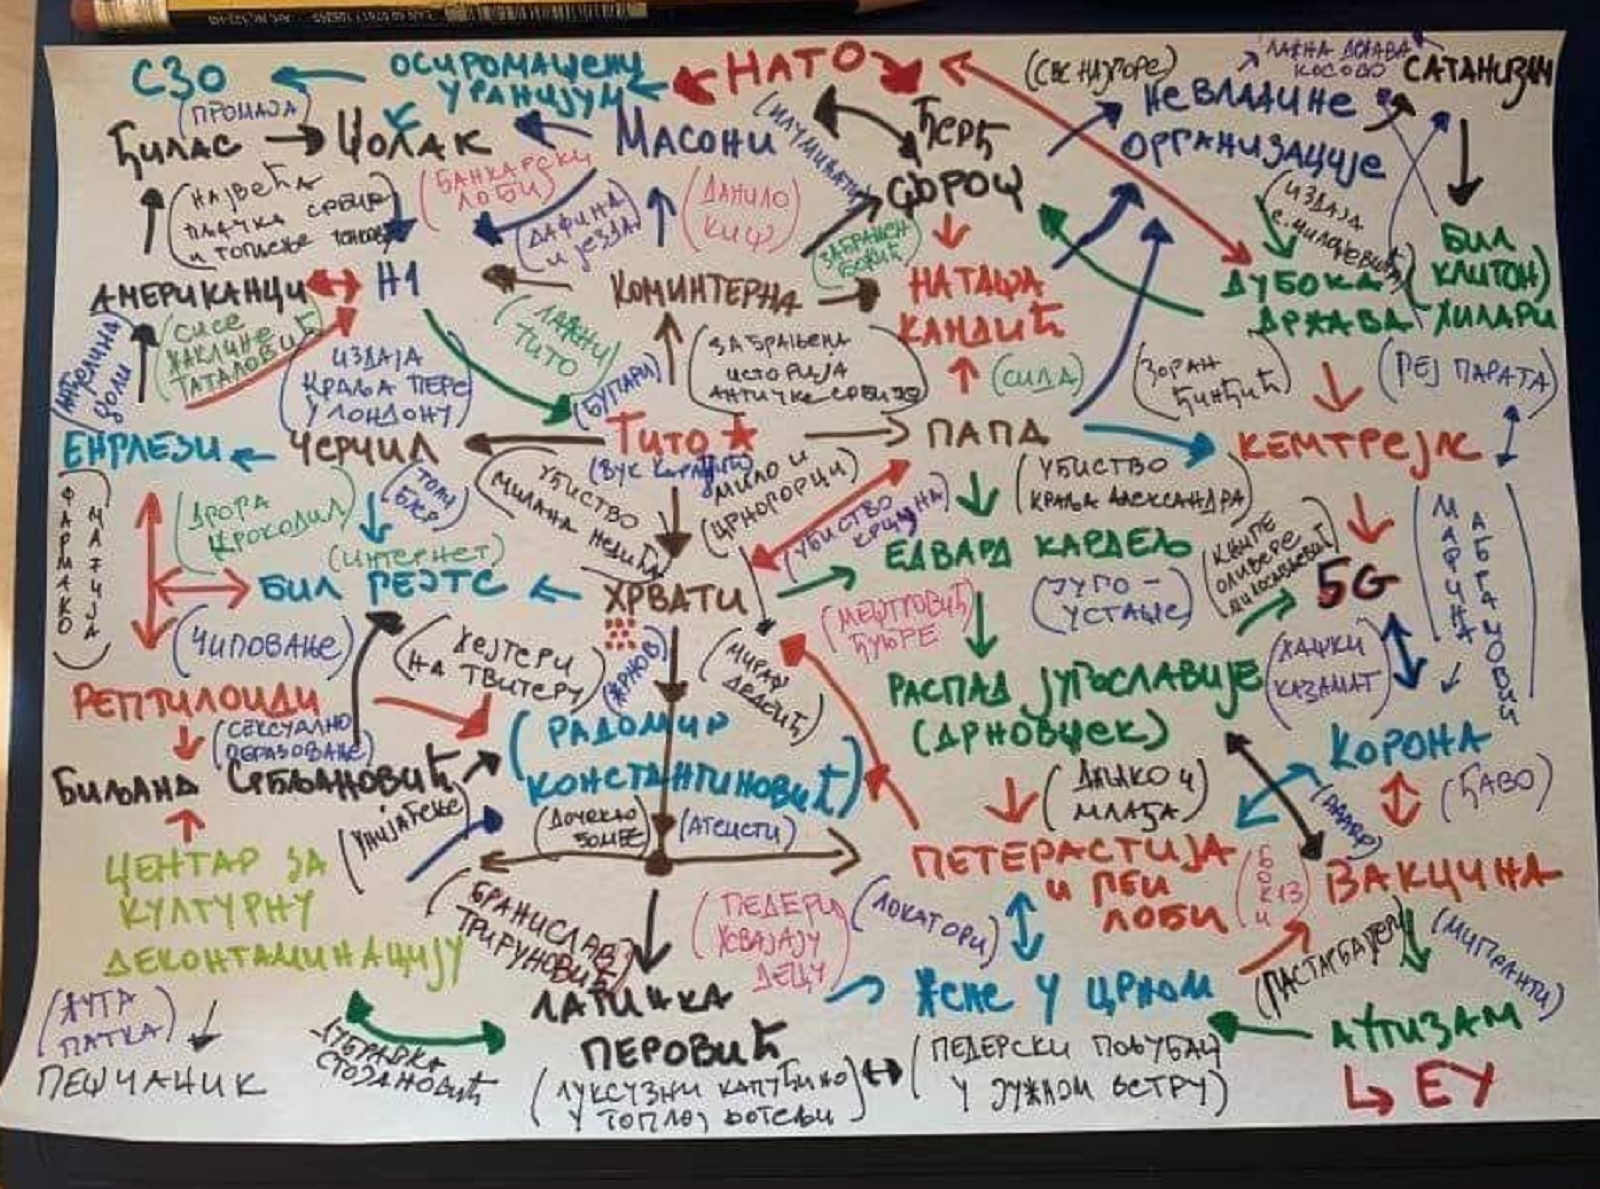 СЗО
ОСИРОМАШЕНИ
УРАНИЈУМ
НАТО
(СВЕ НАЈГОРЕ)
ЛАЖНА ДРЖАВА
КОСОВО
САТАНИЗАМ
(ПРОМАЈА)
ЂИЛАС
ЏОЛАК
МАСОНИ
(ИЛУМИНАТИ)
ЂЕРЂ
СОРОШ
НЕВЛАДИНЕ
ОРГАНИЗАЦИЈЕ
(НАЈВЕЋА
ПЉАЧКА СРБИЈЕ
И ТОПЉЕЊЕ
(БАНКАРСКИ
ЛОБИ)
(ДАФИНА
И ЈЕЗДА)
(ДАНИЛО
КИШ)
(ЗАБРАЊЕН
БОЖИЋ)
(ИЗДАЈА
С. МИЛОШЕВИЋА)
БИЛ
КЛИТОН)
ХИЛАРИ
АМЕРИКАНЦИ
Н1
КОМИНТЕРНА
НАТАША
КАНДИЋ
ДУБОКА
ДРЖАВА
(АНЂЕЛИНА
ЏОЛИ)
(СИСЕ
ЖАКЛИНЕ
ТАТАЛОВИЋ)
(ИЗДАЈА
КРАЉА ПЕРЕ
У ЛОНДОНУ)
(ЛАЖНИ
ТИТО)
(БУГАРИ)
(ЗАБРАЊЕНА
ИСТОРИЈА
АНТИЧКЕ СРБИЈЕ)
(СИДА)
(ЗОРАН
ЂИНЂИЋ)
(РЕЈ ПАРАТА)
ЕНГЛЕЗИ
ЧЕРЧИЛ
ТИТО
ПАПА
КЕМТРЕЈЛС
(ВУК КАРАЏИЋ)
(ФАРМАКО
МАФИЈА)
(ДРОГА
КРОКОДИЛ)
(ТОНИ
БЛЕР)
(УБИСТВО
МИЛАНА НЕДИЋА)
(МИЛО И
ЦРНОГОРЦИ)
(УБИСТВО
КРЦУНА)
(УБИСТВО
КРАЉА АЛЕКСАНДРА)
(ИНТЕРНЕТ)
ЕДВАРД КАРДЕЉ
(КЊИГЕ
ОЛИВЕРЕ
5G
(МАРИНА
АБРАМОВИЋ)
БИЛ ГЕЈТС
ХРВАТИ
(ЈУГО-
УСТАШЕ)
(ЧИПОВАЊЕ)
(ХЕЈТЕРИ
НА ТВИТЕРУ)
(МЕШТРОВИЋ
ЂУБРЕ)
(ХАШКИ
КАЗАМАТ)
РЕПТИЛОИДИ
(СЕКСУАЛНО
ОБРАЗОВАЊЕ)
(МИРАШ
ДЕДЕИЋ)
РАСПАД ЈУГОСЛАВИЈЕ
(ДРНОВШЕК)
КОРОНА
(РАДОМИР
КОНСТАНТИНОВИЋ)
БИЉАНА СРБЉАНОВИЋ
(УНИЈАЋЕЊЕ)
(ДОЧЕКАО
БОМБЕ)
(АТЕИСТИ)
(ДАНКО И
МЛАЂА)
(ЂАВО)
ЦЕНТАР ЗА
КУЛТУРНУ
ДЕКОНТАМИНАЦИЈУ
ПЕТЕРАСТИЈА
И ГЕИ
ЛОБИ
ВАКЦИНА
(ПЕДЕРИ
УСВАЈАЈУ
ДЕЦУ)
(ЛОКАТОРИ)
(МИГРАНТИ)
(ЖУТА
ПАТКА)
ПЕШЧАНИК
(ДУБРАВКА
СТОЈАНОВИЋ
ЛАТИНКА
ПЕРОВИЋ
(ЛУКСУЗНИ КАПУЋИНО
У ТОПЛОЈ ФОТЕЉИ)
ЖЕНЕ У ЦРНОМ
(ПЕДЕРСКИ ПОЉУБАЦ
У ЈУЖНОМ ВЕТРУ)
АУТИЗАМ
ЕУ